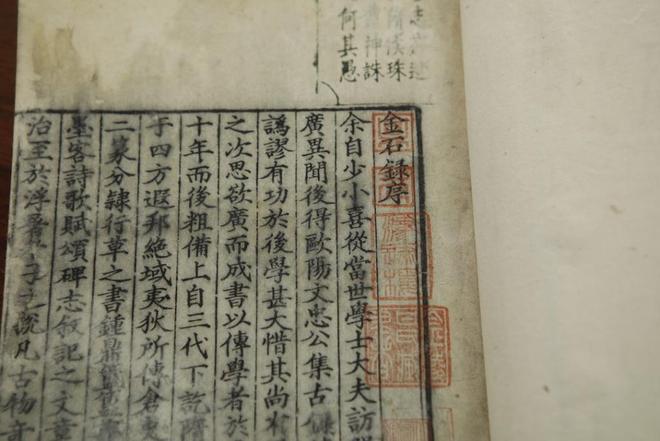 隋侯珠
神誅
何其愚
金石録序
余自少小喜從當世學士大夫訪
廣異聞後得歐陽文忠公集古録
譌謬有功於後學甚大惜其尚有
之次思欲廣而成書以傳學者於
十年而後粗備上自三代下訖隋
于四方遐邦絶域夷狄所傳倉史
二篆分隸行草之書鍾鼎
墨客詩歌賦頌碑志敘記之文章
治至於浮屠老子之說凡古物奇